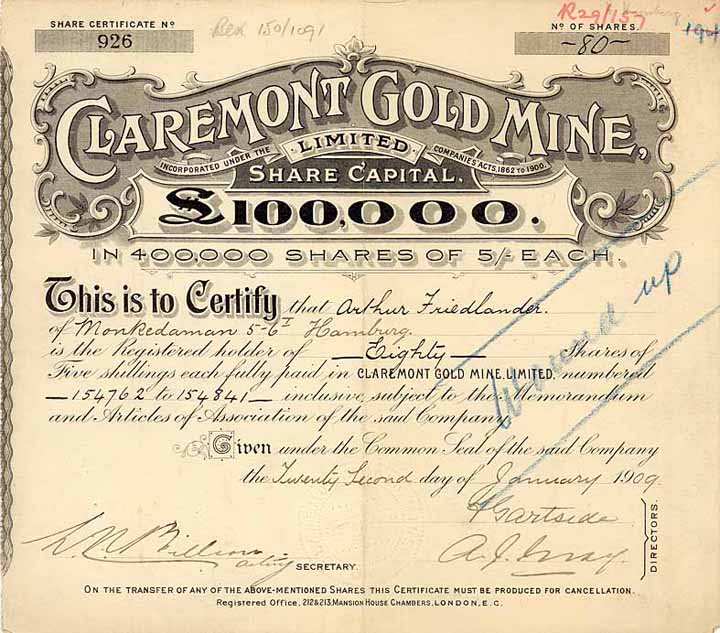 SHARE CERTIFICATE Nº
926
150/1091
R29/157
Nº OF SHARES.
-80-
194
CLAREMONT GOLD MINE,
LIMITED
INCORPORATED UNDER THE COMPANIES' ACTS, 1862 TO 1900.
SHARE CAPITAL,
£100,000.
IN 400,000 SHARES OF 5/- EACH.
This is to Certify that Arthur Friedlander.
of Monkedaman 5-6I Hamburg.
is the Registered holder of Eighty Shares of
Five shillings each fully paid in CLAREMONT GOLD MINE, LIMITED, numbered
154762 to 154841 inclusive, subject to the Memorandum
and Articles of Association of the said Company
Wound up
Given under the Common Seal of the said Company
the Twenty Second day of January 1909
Gartside
DIRECTORS.
SECRETARY.
ON THE TRANSFER OF ANY OF THE ABOVE-MENTIONED SHARES THIS CERTIFICATE MUST BE PRODUCED FOR CANCELLATION.
Registered Office, 212 & 213, MANSION HOUSE CHAMBERS, LONDON, E.C.